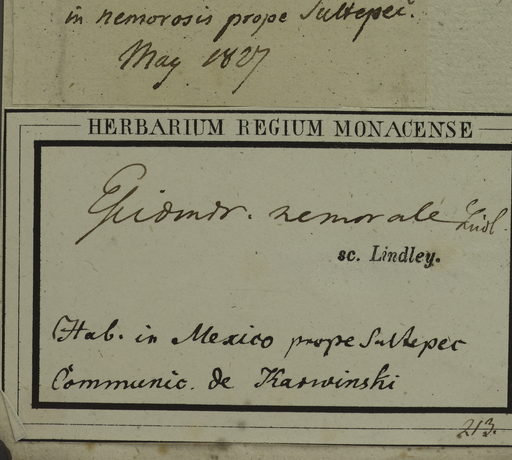 in nemorosis prope Sultepec.
May 1827
HERBARIUM REGIUM MONACENSE
Epidendr. nemorale Lindl.
sc. Lindley.
Hab. in Mexico prope Sultepec
Communic. de Karwinski
213.